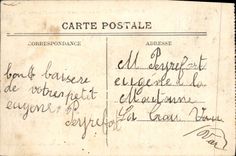 CARTE POSTALE
CORRESPONDANCE
ADRESSE
bons baisers
de votre petit
eugene Peyrefort
M Peyrefort
eugene a la
Moutonne
La Crau Var